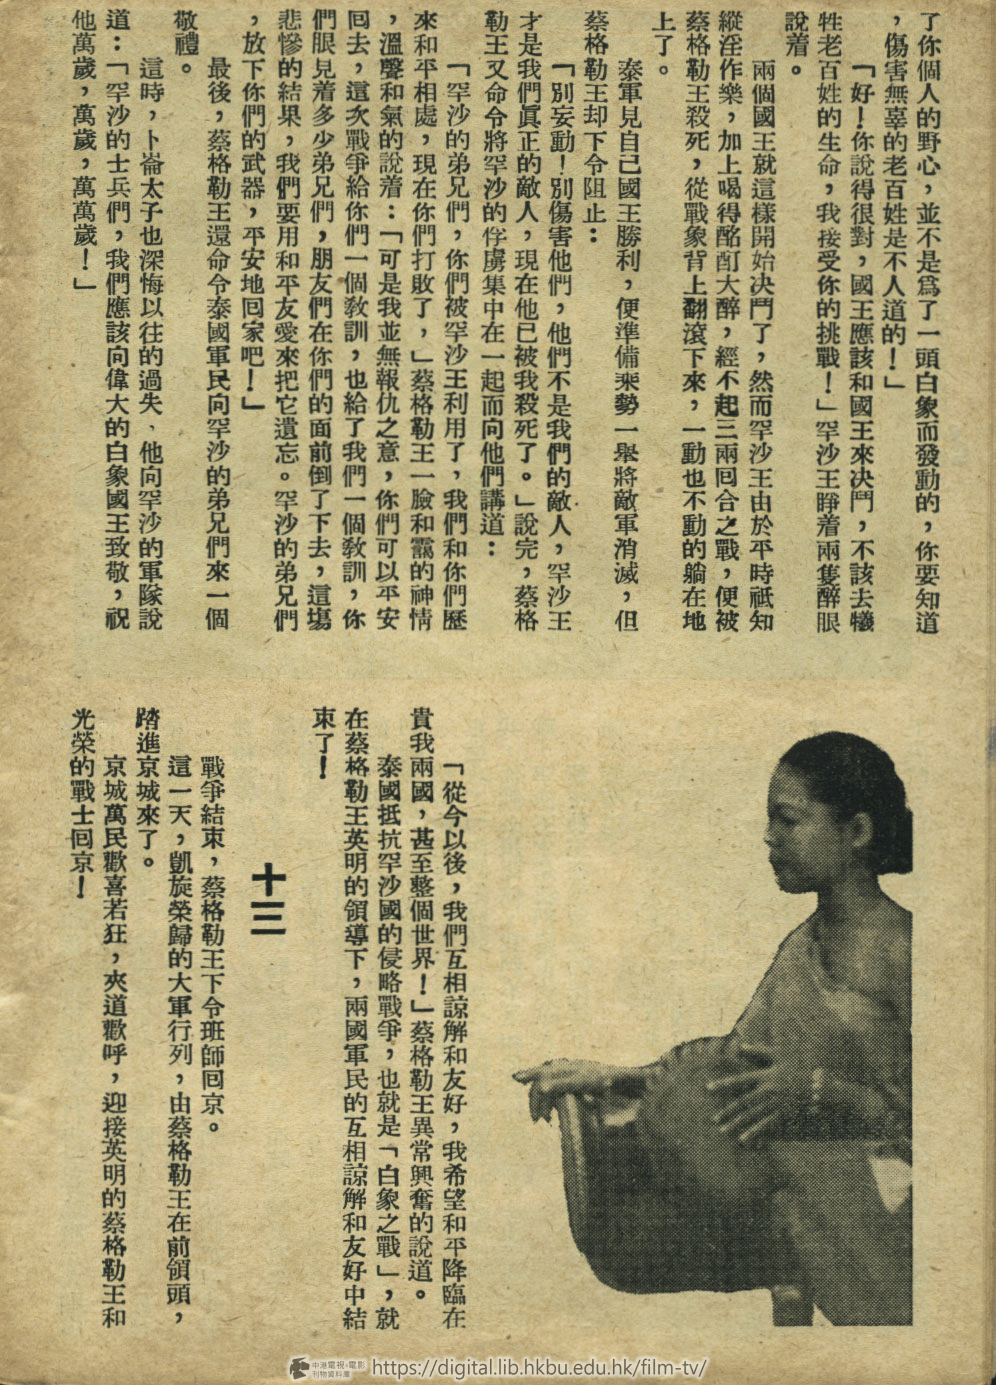 了你個人的野心，並不是爲了一頭白象而發動的，你要知道
，傷害無辜的老百姓是不人道的！」
「好！你說得很對，國王應該和國王來決鬥，不該去犧
牲老百姓的生命，我接受你的挑戰！」罕沙王睜着兩隻醉眼
說着。
兩個國王就這樣開始決鬥了，然而罕沙王由於平時祇知
縱淫作樂，加上喝得酩酊大醉，經不起三兩囘合之戰，便被
蔡格勒王殺死，從戰象背上翻滾下來，一動也不動的躺在地
上了。
泰軍見自己國王勝利，便準備乘勢一舉將敵軍消滅，但
蔡格勒王却下令阻止：
「別妄動！別傷害他們，他們不是我們的敵人，罕沙王
才是我們眞正的敵人，現在他已被我殺死了。」說完，蔡格
勒王又命令將罕沙的俘虜集中在一起而向他們講道：
「罕沙的弟兄們，你們被罕沙王利用了，我們和你們歷
來和平相處，現在你們打敗了，」蔡格勒王一臉和靄的神情
，溫聲和氣的說着：「可是我並無報仇之意，你們可以平安
囘去，這次戰爭給你們一個敎訓，也給了我們一個敎訓，你
們眼見着多少弟兄們，朋友們在你們的面前倒了下去，這場
悲慘的結果，我們要用和平友愛來把它遺忘。罕沙的弟兄們
，放下你們的武器，平安地囘家吧！」
最後，蔡格勒王還命令泰國軍民向罕沙的弟兄們來一個
敬禮。
這時，卜崙太子也深悔以往的過失、他向罕沙的軍隊說
道：「罕沙的士兵們，我們應該向偉大的白象國王致敬，祝
他萬歲，萬歲，萬萬歲！」
「從今以後，我們互相諒解和友好，我希望和平降臨在
貴我兩國，甚至整個世界！」蔡格勒王異常興奮的說道。
泰國抵抗罕沙國的侵略戰爭，也就是「白象之戰」，就
在蔡格勒王英明的領導下，兩國軍民的互相諒解和友好中結
束了！
十三
戰爭結束，蔡格勒王下令班師囘京。
這一天，凱旋榮歸的大軍行列，由蔡格勒王在前領頭，
踏進京城來了。
京城萬民歡喜若狂，夾道歡呼，迎接英明的蔡格勒王和
光榮的戰士囘京！
中港電視・電影
刊物資料庫
https://digital.lib.hkbu.edu.hk/film-tv/